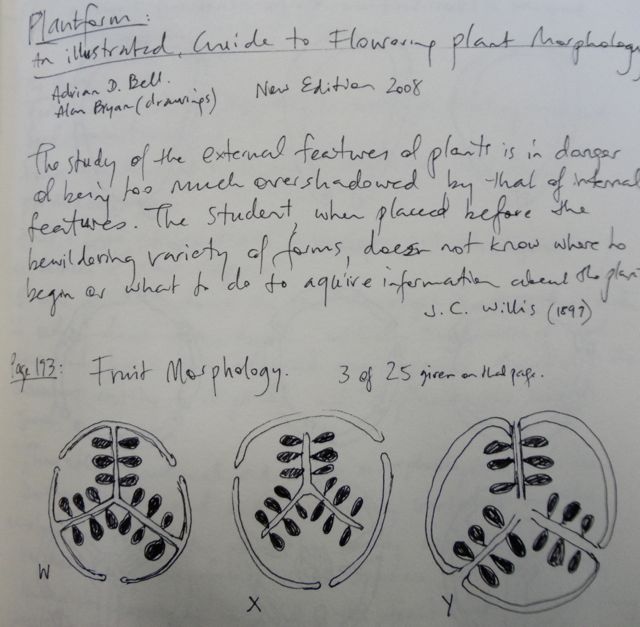 Plantform:
An illustrated Guide to Flowering plant Morphology
Adrian D. Bell.
Alan Bryan (drawings)
New Edition 2008
The study of the external features of plants is in danger
of being too much overshadowed by that of internal
features. The student, when placed before the
bewildering variety of forms, does not know where to
begin or what to do to aquire information about the plant
J.C. Willis (1897)
Page 193: Fruit Morphology. 3 of 25 given on that page.
W
X
Y